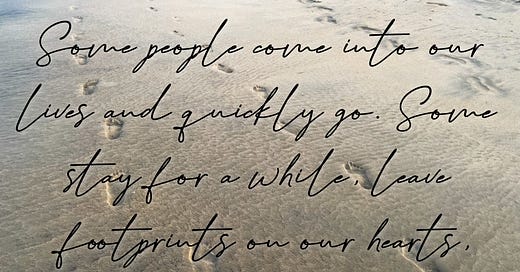 Some people come into our
lives and quickly go. Some
stay for a while, leave
footprints on our hearts,